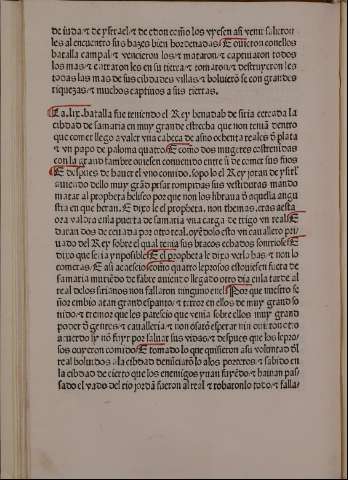 de iuda ⁊ de ysrael ⁊ de edon como los vyesen asi venir salieron
les al encuentro sus bazes bien hordenadas. E ouieron conellos
batalla campal ⁊ vencieron los ⁊ mataron ⁊ captiuaron todos
los mas ⁊ entraron les en su tierra ⁊ tomaron ⁊ destruyeron les
todas las mas de sus cibdades villas. ⁊ boluierō se con grandes
riquezas ⁊ muchos captiuos a sus tierras.
La .lix. batalla fue teniendo el Rey benadab de siria cercada la
cibdad de samaria en muy grande estrecha que non teniā dentro
que comer llego a valer vna cabeça de asno ochenta reales đ plata
⁊ vn papo de paloma quatro. E como dos mugeres costrenidas
con la grand fambre ouiesen convenido entre si de comer sus fijos
E despues de hauer el vno comido. sopo lo el Rey joran de ysrael
auiendo dello muy grād pesar rompidas sus vestiduras mando
matar al propheta heliseo por que non los libraua đ aquella angu
stia en que heran. E dixo le el propheta. non themas. cras a esta
ora valdra enla puerta de samaria vna carga de trigo vn real. E
daran dos de ceuada por otro real. oyēdolo esto vn cauallero pri
uado del Rey sobre el qual tenia sus braços echados sonriose. E
dixo que seria ynposible. E el propheta le dixo verlo has. ⁊ non lo
comeras. E asi acaescio como quatro leprosos estouiesen fuera de
samaria muriēdo de fabre auiendo llegado otro dia enla tarde al
real delos sirianos non fallaron ninguno enel. Por que nuestro se
ñor embio atan grand espanto ⁊ terror en ellos de muy grand so
nido. ⁊ tremor que les parescio que venia sobre ellos muy grand
poder đ gentes ⁊ caualleria. ⁊ non osarō esperar nin ouieron otro
acuerdo sy nō fuyr por saluar sus vidas. ⁊ despues que los lepro/
sos ouyeron comido. E tomado lo que quisieron asu voluntad đl
real boluidos ala cibdad denūciarō lo alos porteros ⁊ sabido en
la cibdad de cierto que los enemigos yuan fuyēdo. ⁊ hauian pas/
sado el vado del rio jordā fueron al real ⁊ robaron lo todo. ⁊ falla/